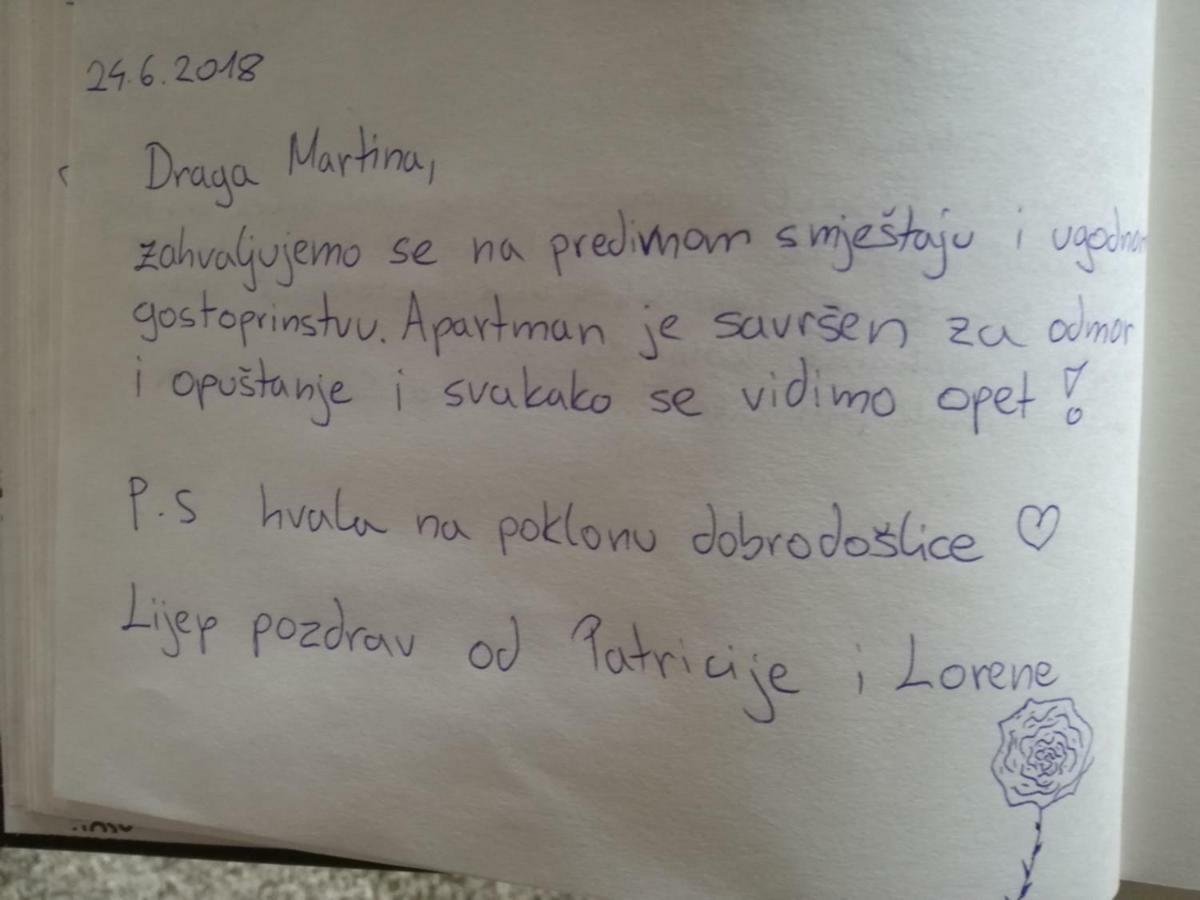 24.6.2018
Draga Martina,
zahvaljujemo se na predimnom smještaju i ugodnom
gostoprinstvu. Apartman je savršen za odmor
i opuštanje i svakako se vidimo opet!
P.S hvala na poklonu dobrodošlice ♡
Lijep pozdrav od Patricije i Lorene